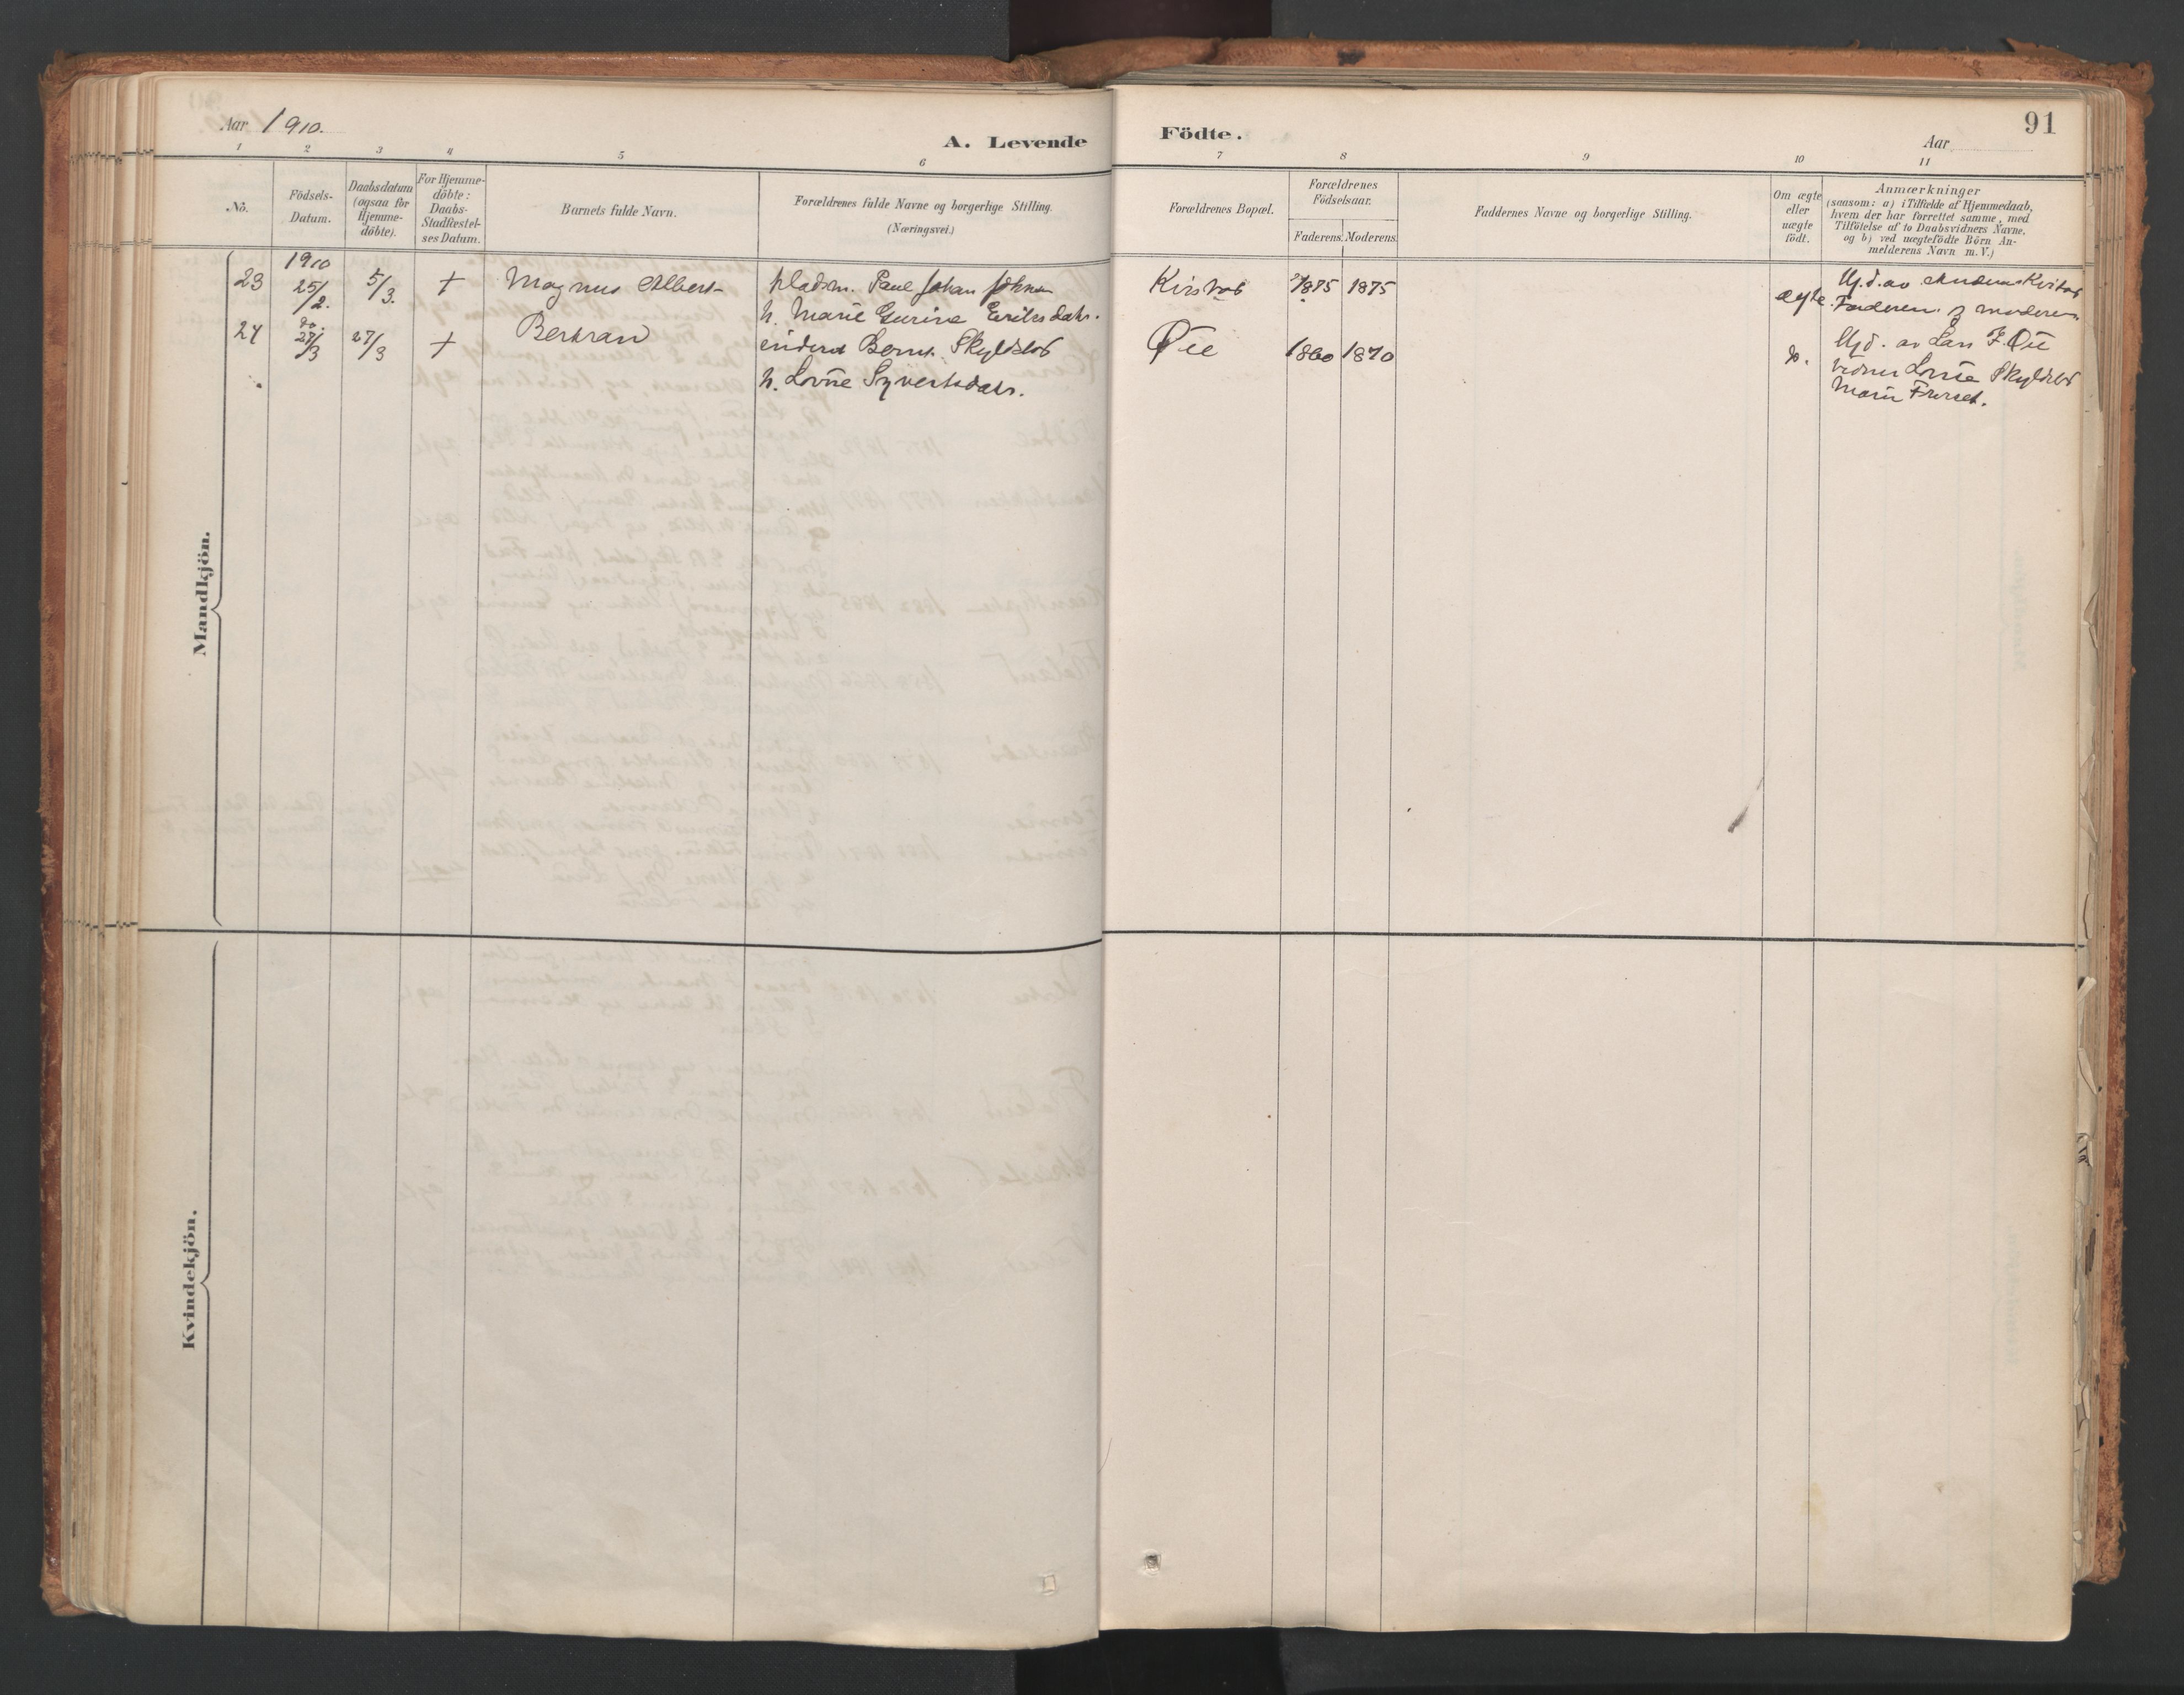 Aar 1910.
A. Levende Födte.
91
Aar
1 2 3 4 5 6 7 8 9 10 11
No.
Födsels-
Datum.
Daabsdatum
(ogsaa for
Hjemme-
döbte).
For Hjemme-
döbte:
Daabs-
Stadfæstel-
ses Datum.
Barnets fulde Navn.
Forældrenes fulde Navne og borgerlige Stilling.
(Næringsvei.)
Forældrenes Bopæl.
Forældrenes
Födselsaar.
Faderens. Moderens.
Faddernes Navne og borgerlige Stilling.
Om ægte
eller
uægte
födt.
Anmærkninger
(saasom: a) i Tilfælde af Hjemmedaab,
hvem der har forrettet samme, med
Tilföielse af to Daabsvidners Navne,
og b) ved uægtefödte Börn An-
melderens Navn m. V.)
Mandkjön.
1910
23 25/2. 5/3. + Magnus Albert
pladsm. Paul Johan Johnsen
h. Marie Gurine Eriksdatr.
1875 1875
ægte.
Hj.d. av
Faderen & moderen.
24 do. 27/3 27/3 + Bertran
Bernt Skyldstad
h. Lovise Syvertsdatr.
Øie
1860 1870
do.
Hj.d. av Lars F. Øie
Vidner Lovise Skyldstad
Marie
Kvindekjön.